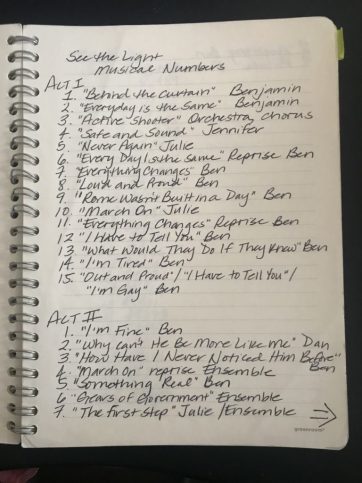 See the Light
Musical Numbers
ACT I
1. "Behind the Curtain" Benjamin
2. "Everyday is the Same" Benjamin
3. "Active Shooter" Orchestra, Chorus
4. "Safe and Sound" Jennifer
5. "Never Again" Julie
6. "Every Day Is the Same" Reprise Ben
7. "Everything Changes" Ben
8. "Loud and Proud" Ben
9. "Rome Wasn't Built in a Day" Ben
10. "March On" Julie
11. "Everything Changes" Reprise Ben
12 "I Have to Tell You" Ben
13 "What Would They Do If They Knew" Ben
14. "I'm Tired" Ben
15. "Out and Proud"/"I Have to Tell You"/
"I'm Gay" Ben
ACT II
1. "I'm Fine" Ben
2. "Why Can't He Be More Like Me" Dan
3. "How Have I Never Noticed Him Before" Ben
4. "March On" reprise Ensemble
5. "Something Real" Ben
6. "Gears of Government" Ensemble
7. "The First Step" Julie/Ensemble
greenroom